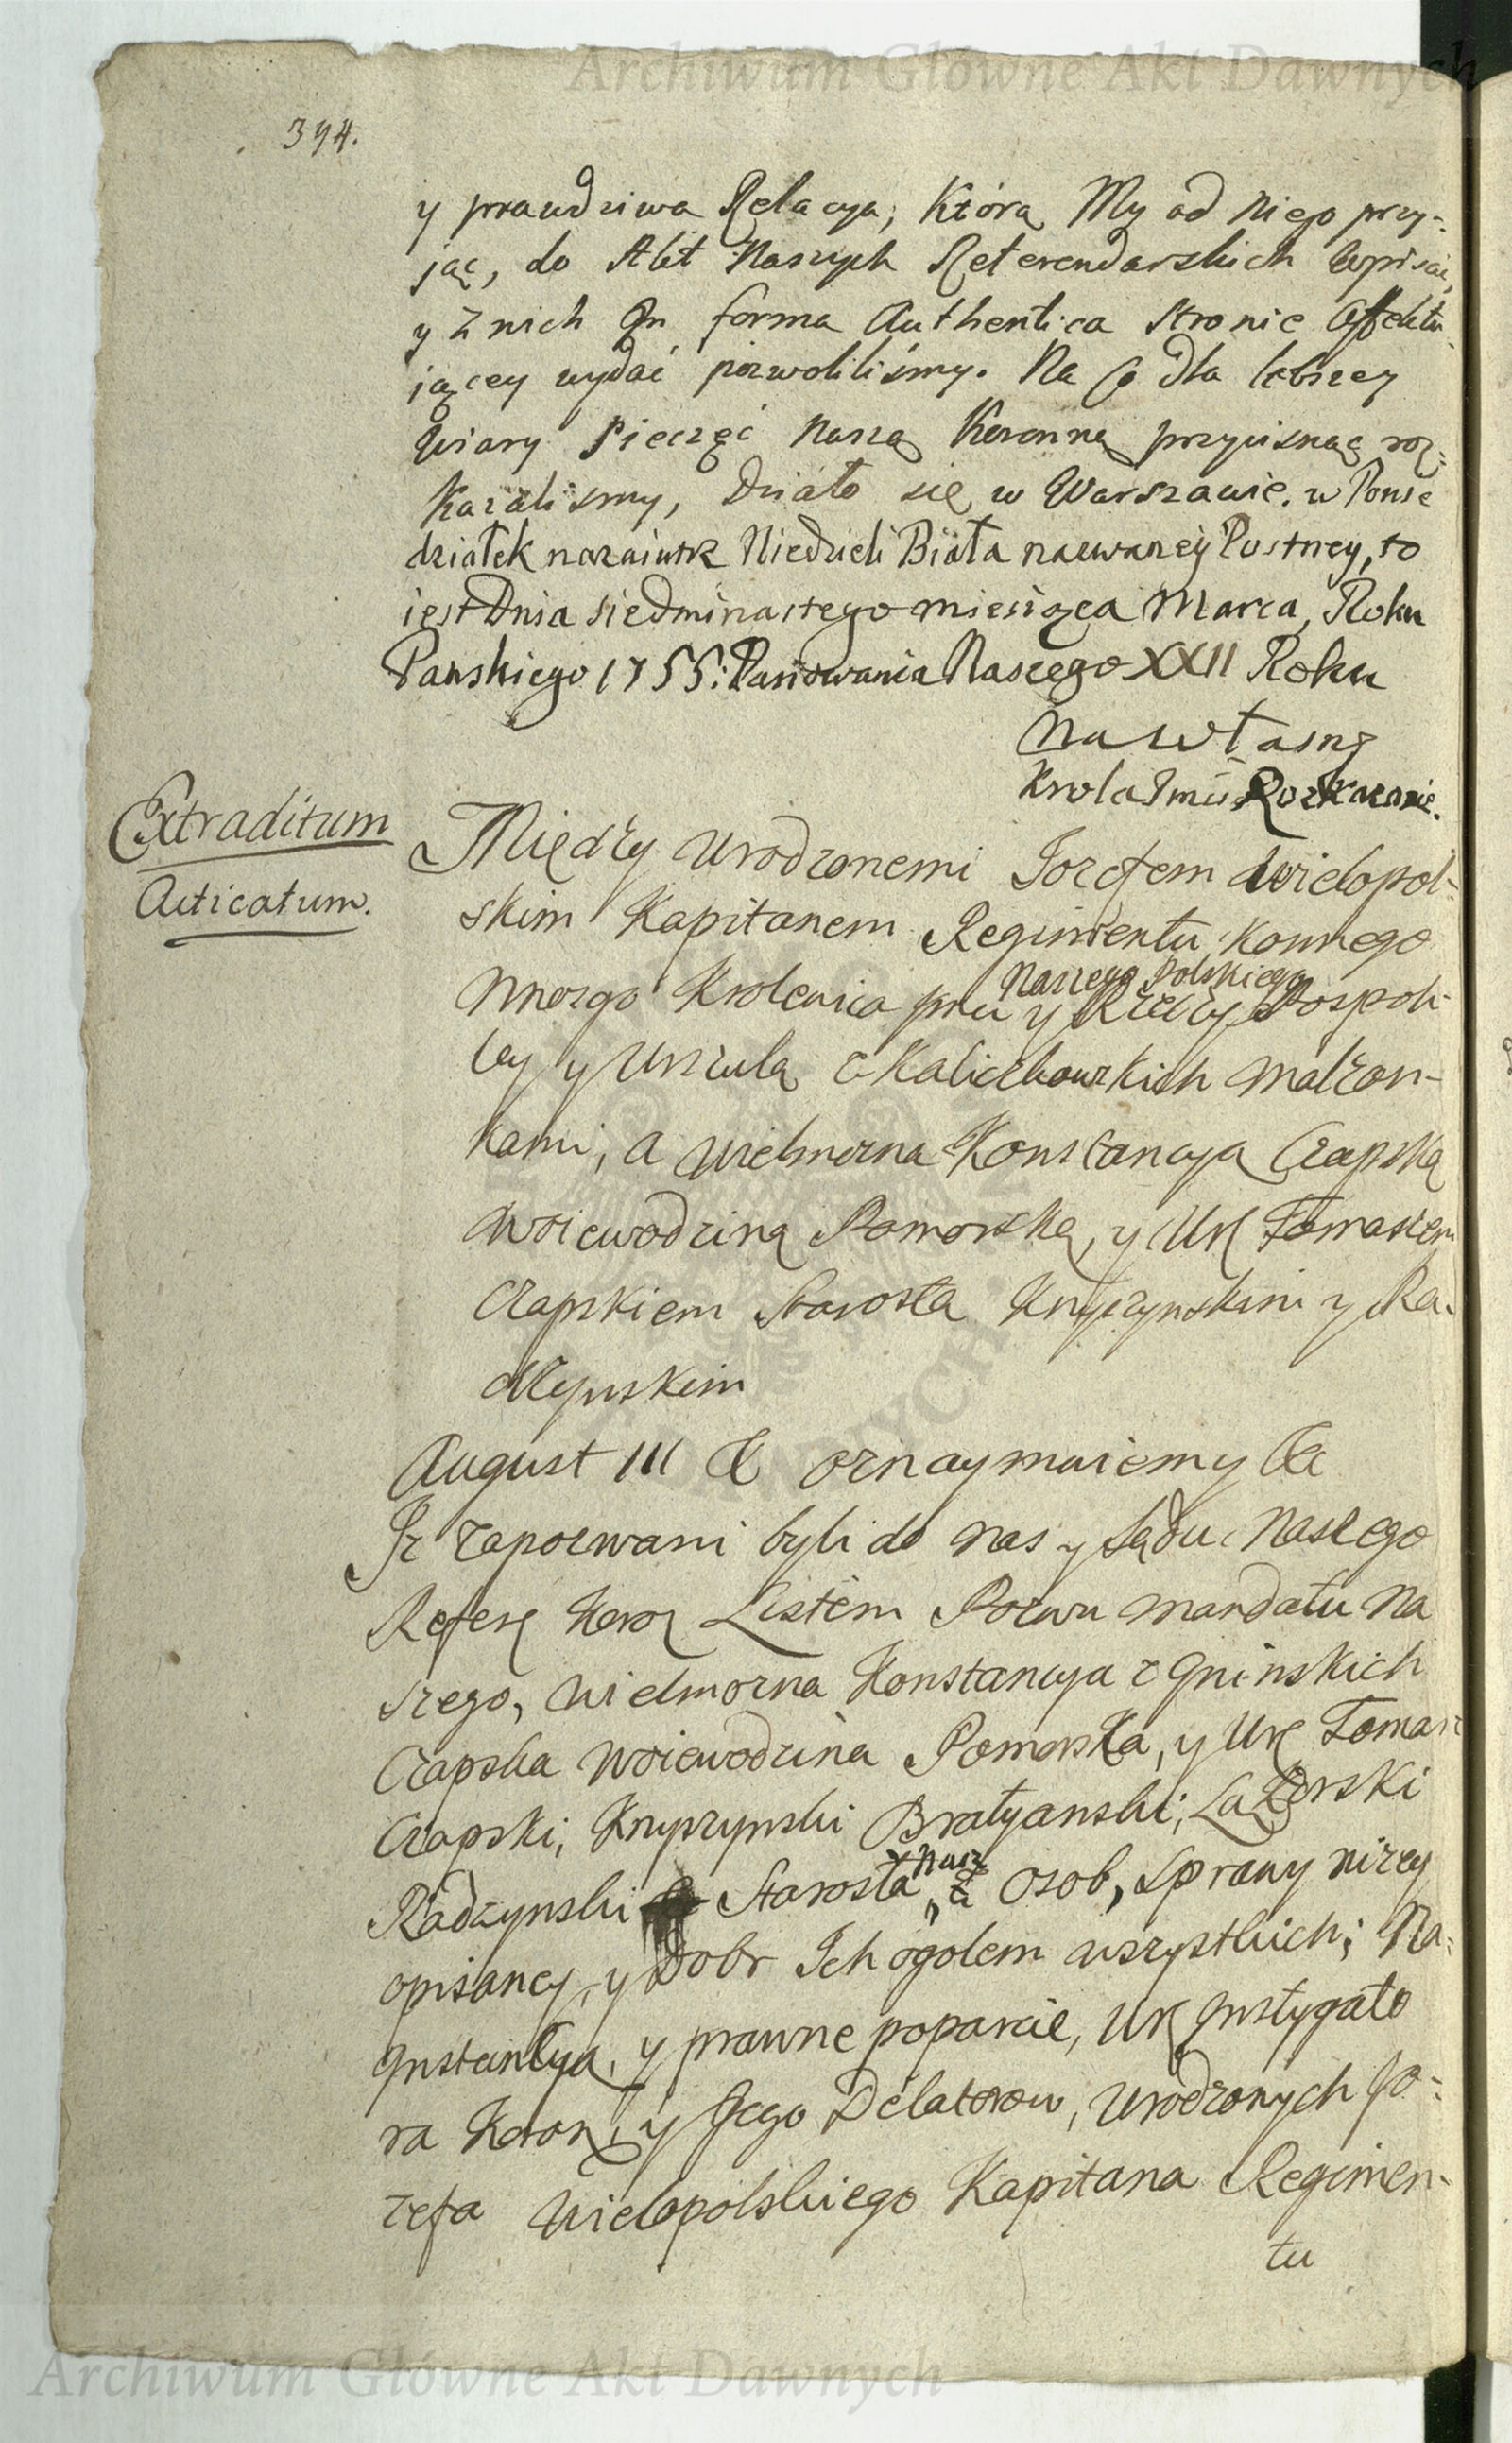 394.
y prawdziwa Relacya, Którą My od niego przy-
jąć, do Akt Naszych Referendarskich wpisać,
y z nich In forma Authentica stronie affektu
jącey wydać pozwoliliśmy. Na co dla lebszey
wiary Pieczęć naszą Koronną przycisnąć roz-
kazalismy, Działo się w Warszawie. w Ponie
działek nazaiutrz Niedzieli Biała nazwaney Postney, to
iest Dnia siedminastego miesiąca Marca, Roku
Panskiego 1755: Panowania Naszego XXII Roku
Na własne
Krola Jmci Rozkazanie.
Extraditum
Acticatum.
Między Urodzonemi Jozefem Wielopol-
skim Kapitanem Regimentu Konnego
Krolewica przy y Rzeczy Pospoli-
Naszego Polskiego
tey y Urszulą z Kaliczkowskich małżon-
kami, a Wielmożną Konstancyą Czapską
Woiewodziną Pomorską, y Ur Tomaszem
Czapskiem Starostą Knyszynskim y Ra-
dzynskim
August III &c oznaymuiemy &c
Iż zapozwani byli do nas y Sądu Naszego
Refere Koro Listem Pozwu mandatu Na
szego, Wielmozna Konstancya z Gninskich
Czapska Woiewodzina Pomorska, y Ur Tomasz
Czapski, Knyszynski Bratyanski,
Radzynski Starosta, z osob, sprawy nizey
opisaney, y Dobr Ich ogolem wszystkich; Na
Instancyą, y prawne poparcie, Ur Instygato
ra Koron, y Jego Delatorow, Urodzonych Jo-
zefa Wielopolskiego Kapitana Regimen-
tu
Archiwum Główne Akt Dawnych